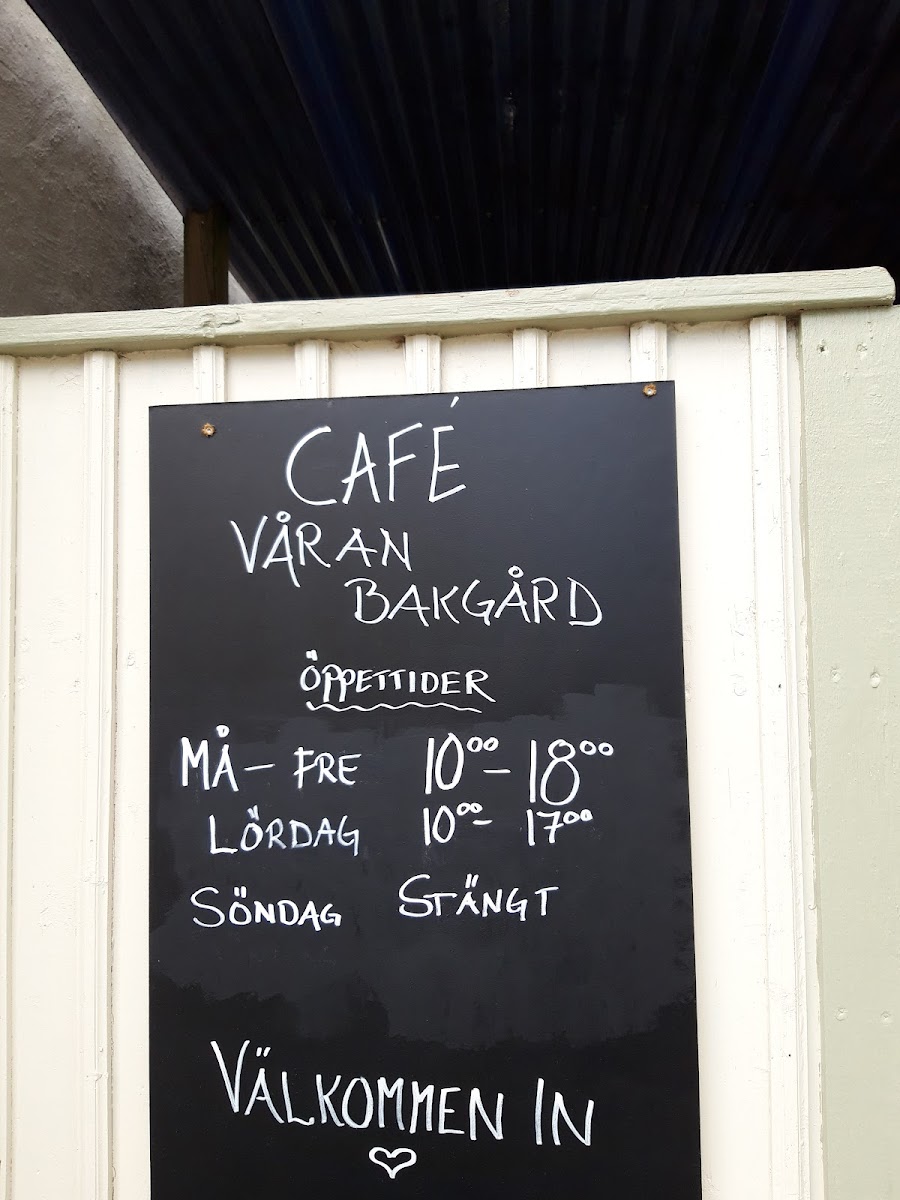 CAFÉ
VÅRAN
BAKGÅRD
ÖPPETTIDER
MÅ – FRE 10⁰⁰ – 18⁰⁰
LÖRDAG 10⁰⁰ – 17⁰⁰
SÖNDAG STÄNGT
VÄLKOMMEN IN
♡